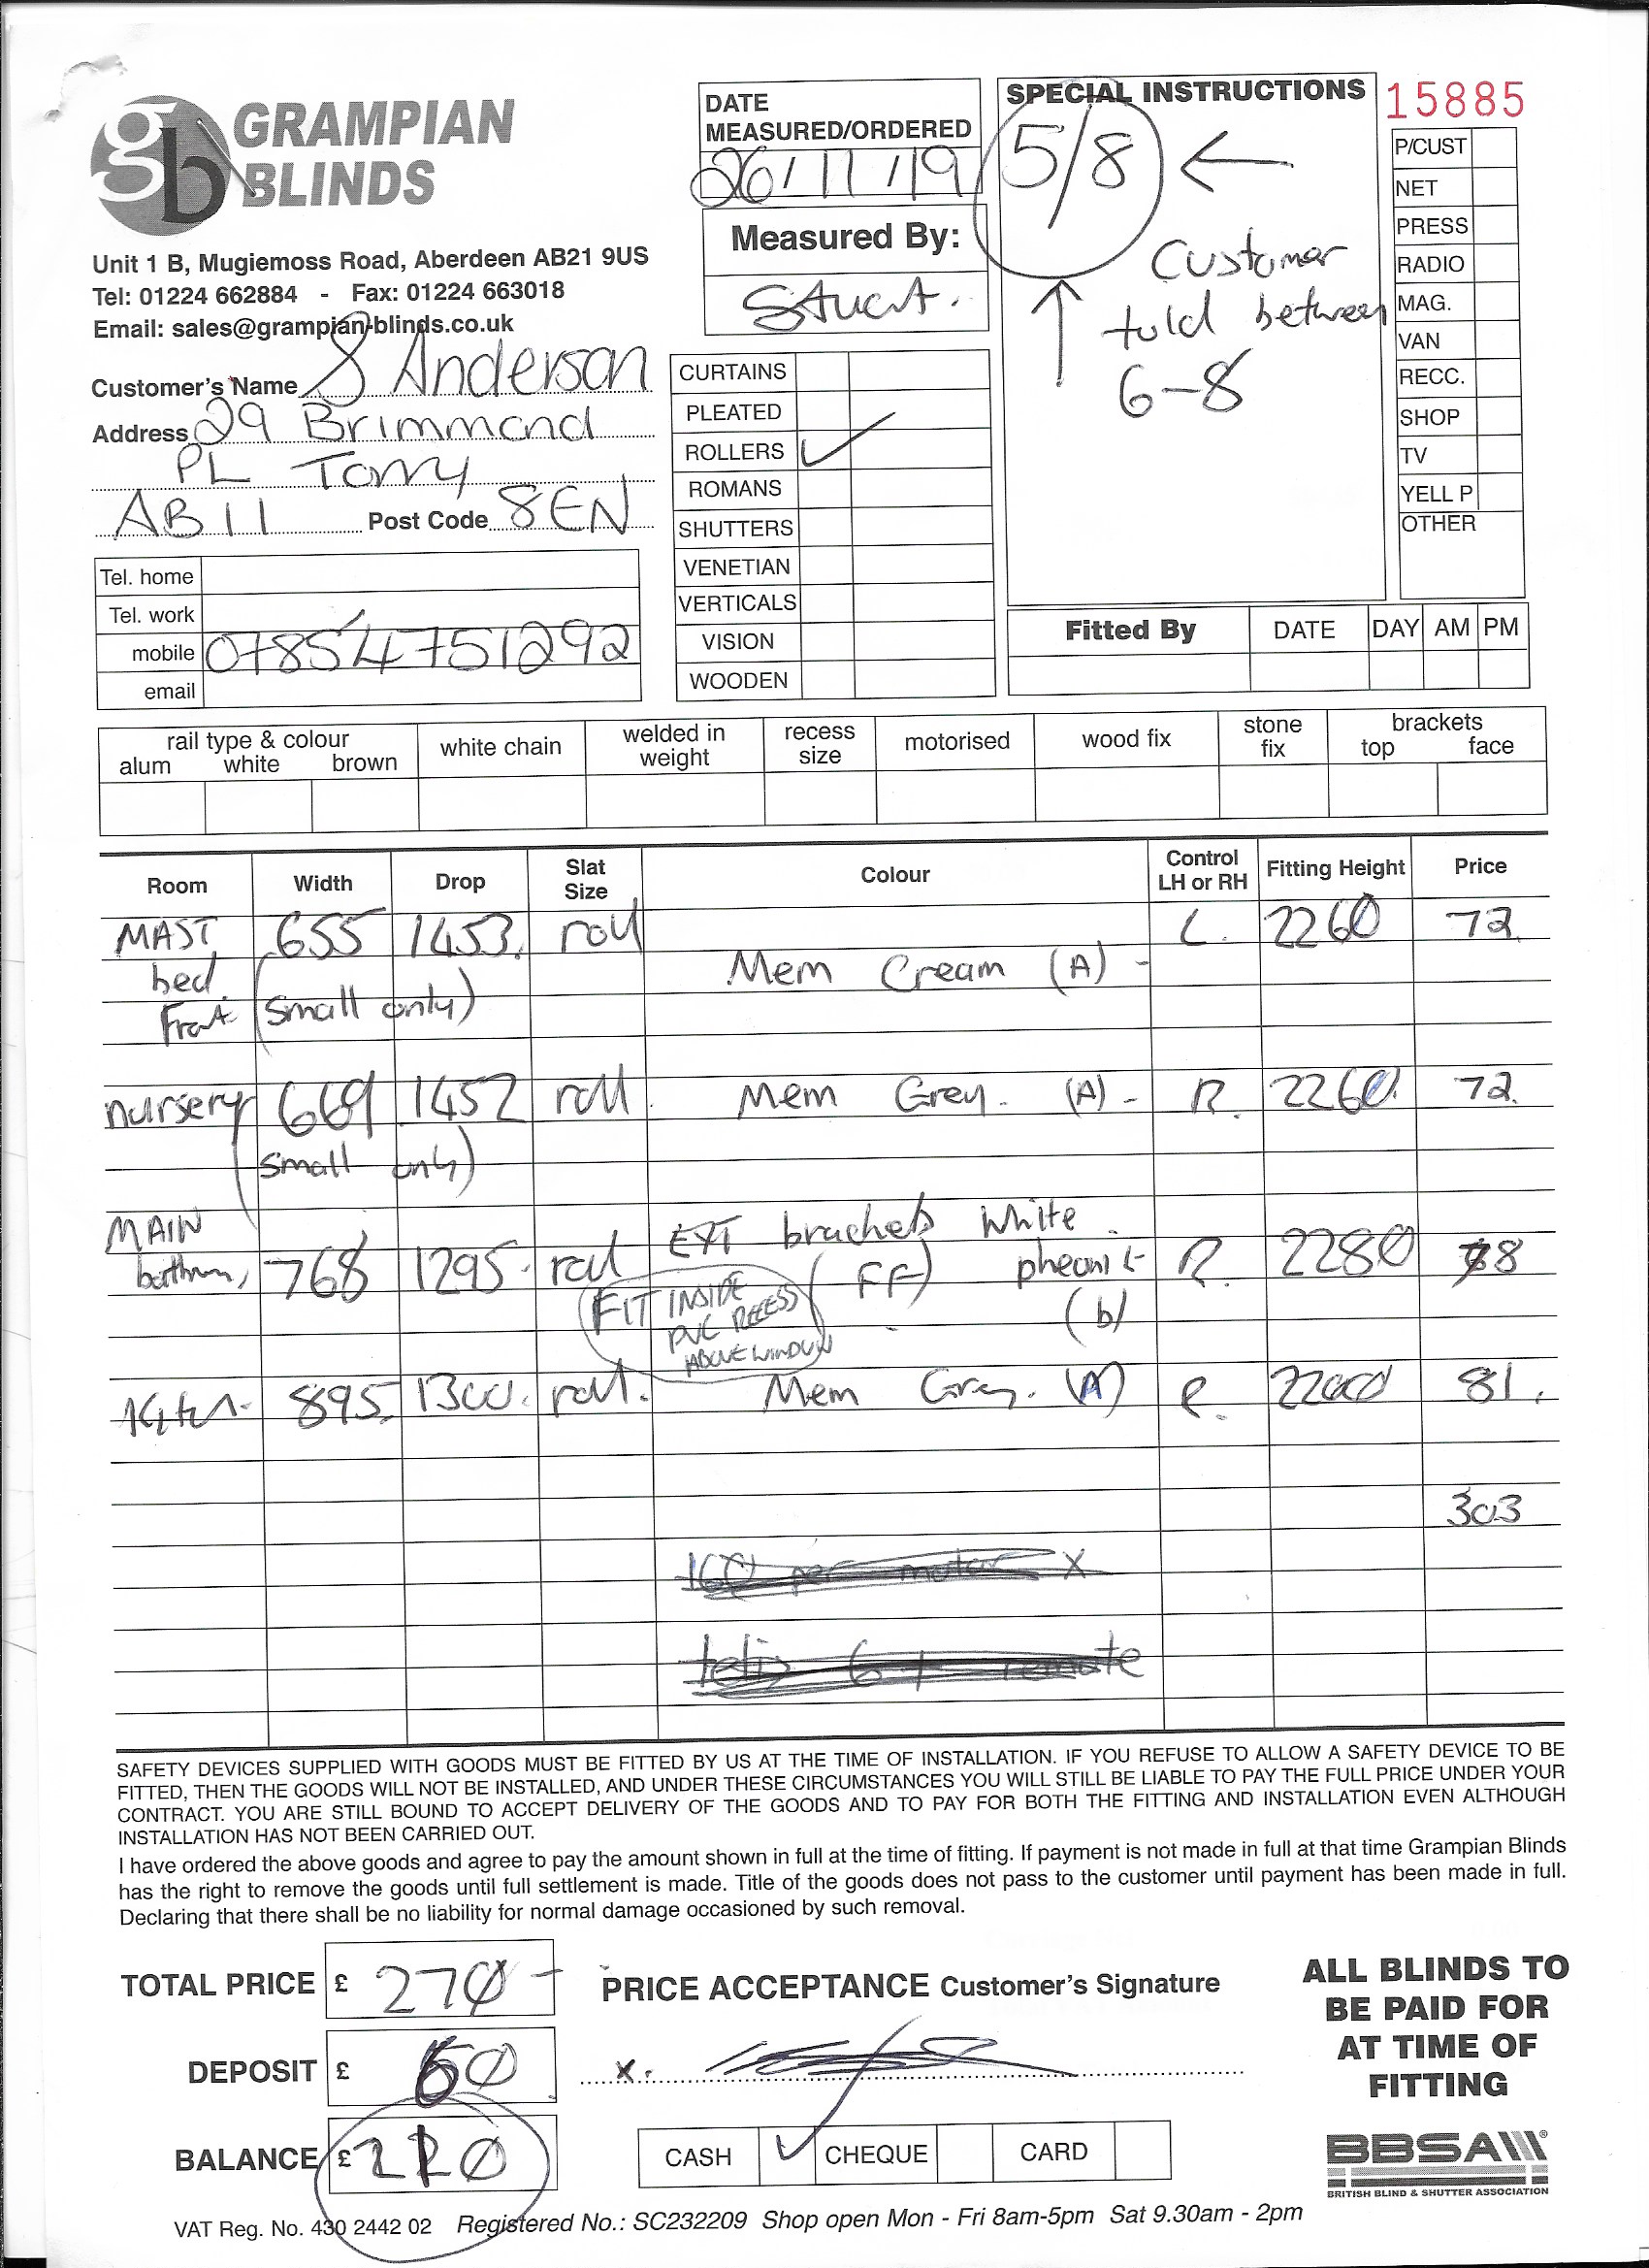 GRAMPIAN
BLINDS
Unit 1 B, Mugiemoss Road, Aberdeen AB21 9US
Tel: 01224 662884 - Fax: 01224 663018
Email: sales@grampian-blinds.co.uk
Customer's Name S Anderson
Address 29 Brimmond
PL Torry
AB11 Post Code 8EN
Tel. home
Tel. work
mobile 07854751292
email
DATE
MEASURED/ORDERED
26/11/19
Measured By:
Stuart.
CURTAINS
PLEATED
ROLLERS ✓
ROMANS
SHUTTERS
VENETIAN
VERTICALS
VISION
WOODEN
SPECIAL INSTRUCTIONS
5/8 ←
↑ Customer
told between
6-8
15885
P/CUST
NET
PRESS
RADIO
MAG.
VAN
RECC.
SHOP
TV
YELL P
OTHER
Fitted By DATE DAY AM PM
rail type & colour
alum white brown
white chain
welded in
weight
recess
size
motorised
wood fix
stone
fix
brackets
top face
Room Width Drop Slat Size Colour Control LH or RH Fitting Height Price
MAST 655 1453. roll L. 2260 72
bed. Mem Cream (A) -
Front (Small only)
nursery 669 1452 roll. Mem Grey. (A) - R. 2260. 72.
(Small only)
MAIN EXT brackets White
bathrm, 768 1295. roll (FF) R. 2280 78
(b)
FIT INSIDE
PVC RECESS
ABOVE WINDOW
895. 1300. roll. Mem Grey. (A) R. 2200 81.
303
160 per motor X
telis 6 + remote
SAFETY DEVICES SUPPLIED WITH GOODS MUST BE FITTED BY US AT THE TIME OF INSTALLATION. IF YOU REFUSE TO ALLOW A SAFETY DEVICE TO BE
FITTED, THEN THE GOODS WILL NOT BE INSTALLED, AND UNDER THESE CIRCUMSTANCES YOU WILL STILL BE LIABLE TO PAY THE FULL PRICE UNDER YOUR
CONTRACT. YOU ARE STILL BOUND TO ACCEPT DELIVERY OF THE GOODS AND TO PAY FOR BOTH THE FITTING AND INSTALLATION EVEN ALTHOUGH
INSTALLATION HAS NOT BEEN CARRIED OUT.
I have ordered the above goods and agree to pay the amount shown in full at the time of fitting. If payment is not made in full at that time Grampian Blinds
has the right to remove the goods until full settlement is made. Title of the goods does not pass to the customer until payment has been made in full.
Declaring that there shall be no liability for normal damage occasioned by such removal.
TOTAL PRICE £ 270 -
DEPOSIT £ 60
BALANCE £ 210
PRICE ACCEPTANCE Customer's Signature
x.
CASH ✓ CHEQUE CARD
ALL BLINDS TO
BE PAID FOR
AT TIME OF
FITTING
BBSA
BRITISH BLIND & SHUTTER ASSOCIATION
VAT Reg. No. 430 2442 02 Registered No.: SC232209 Shop open Mon - Fri 8am-5pm Sat 9.30am - 2pm